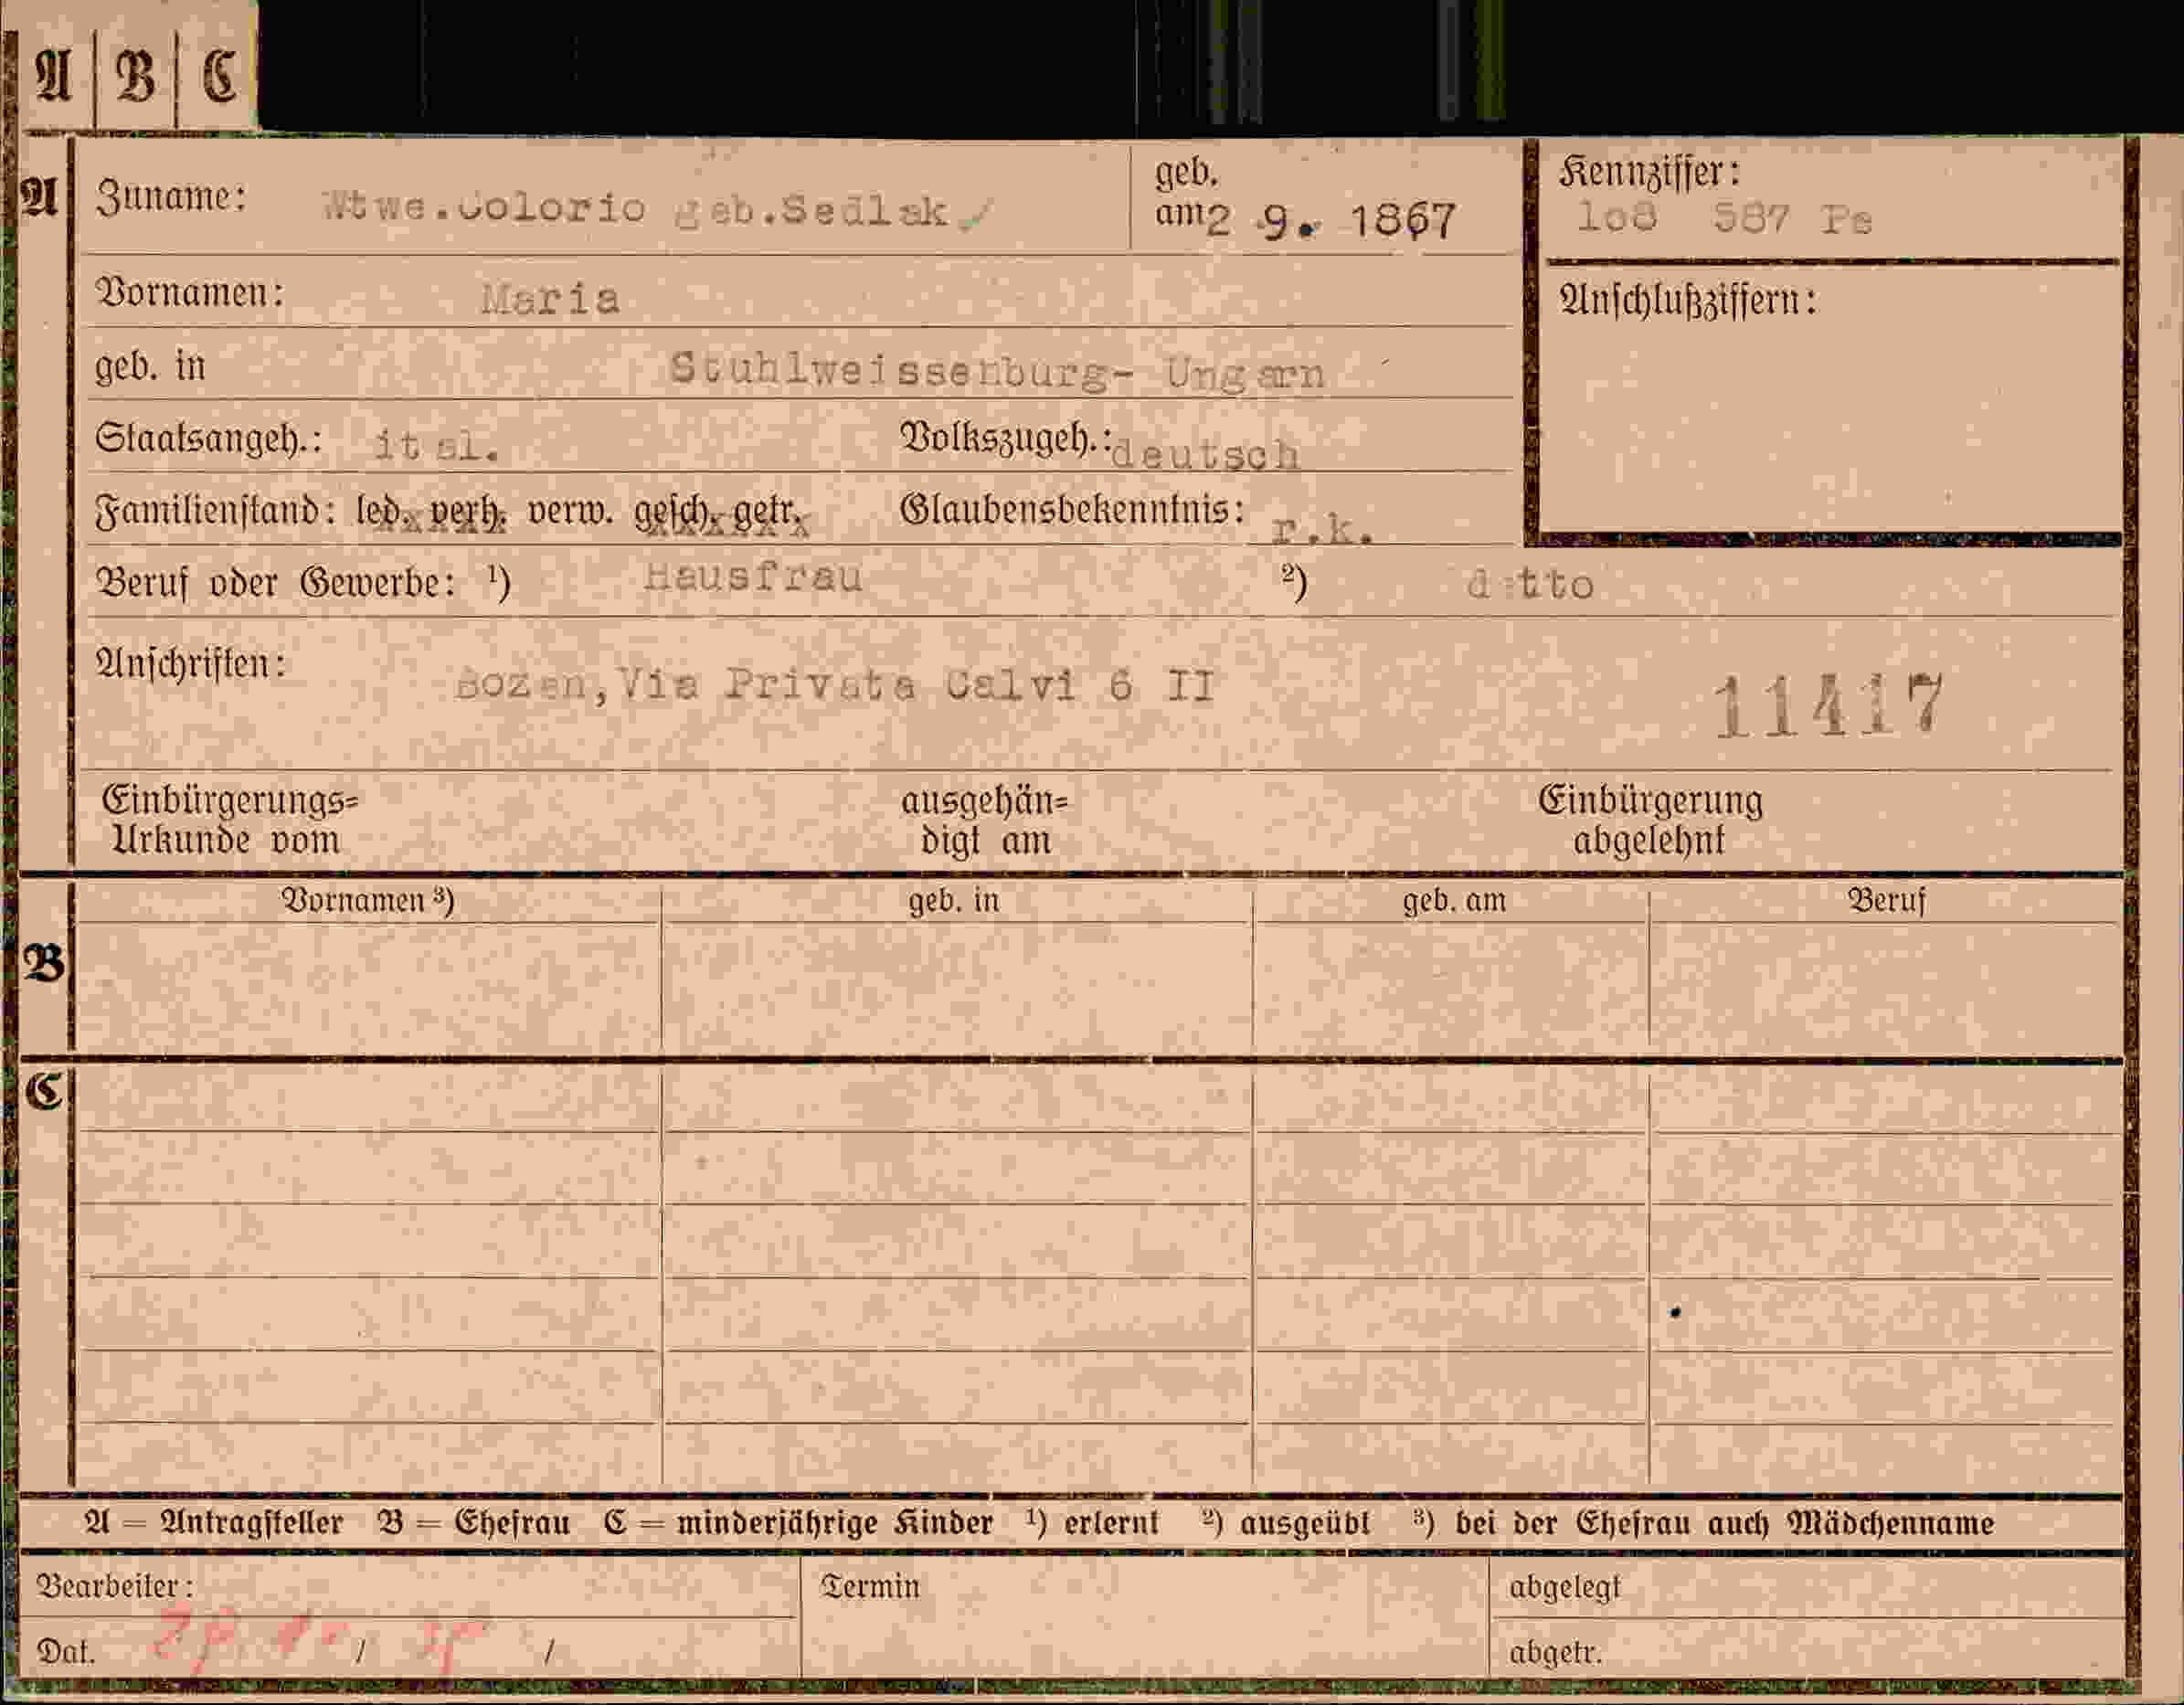 A B C
A Zuname: Wtwe.Colorio geb.Sedlak geb. am 2 9. 1867 Kennziffer: 1o8 587 Pe
Vornamen: Maria Anschlußziffern:
geb. in Stuhlweissenburg- Ungarn
Staatsangeh.: ital. Volkszugeh.: deutsch
Familienstand: led. verh. verw. gesch. getr. Glaubensbekenntnis: r.k.
Beruf oder Gewerbe: ¹) Hausfrau ²) ditto
Anschriften: Bozen,Via Privata Calvi 6 II 11417
Einbürgerungs= ausgehän= Einbürgerung
Urkunde vom digt am abgelehnt
B Vornamen ³) geb. in geb. am Beruf
C
A = Antragsteller B = Ehefrau C = minderjährige Kinder ¹) erlernt ²) ausgeübt ³) bei der Ehefrau auch Mädchenname
Bearbeiter: Termin abgelegt
Dat. / / abgetr.